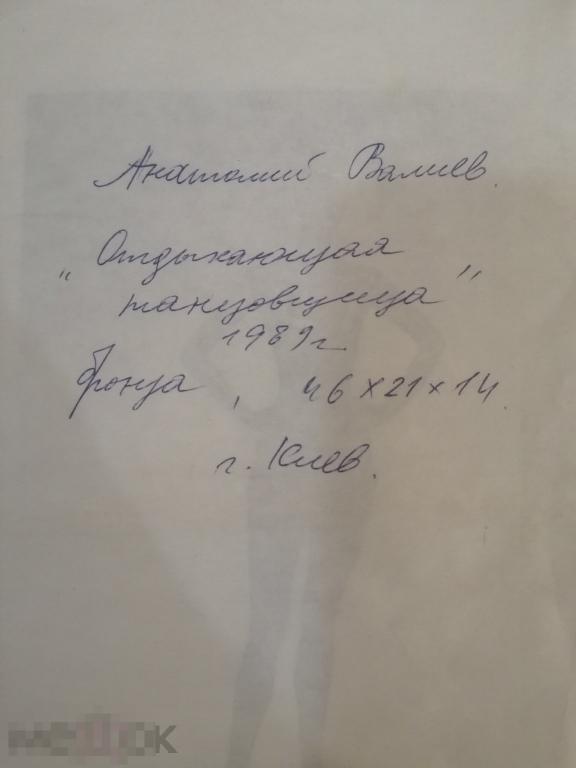 Анатолий Валиев.
„Отдыхающая
танцовщица”
1989г
бронза, 46×21×14.
г. Киев.